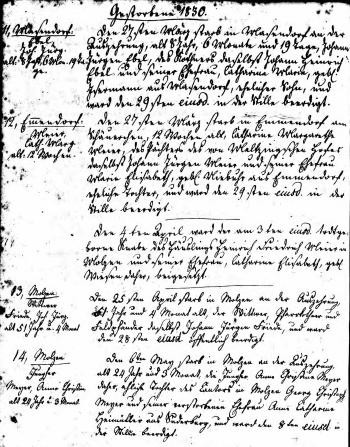 Gestorbene 1830.
11, Masendorf.
Ebel
Joh. Jürg.
alt: 8 Jahr 6 Mon. 19 Tage
Den 27sten März starb in Masendorf an der
Auszehrung, alt 8 Jahr, 6 Monate und 19 Tage, Johann
Jürgen Ebel, des daselbst Johann Heinrich
Ebel und seiner Ehefrau, Catharine Marie, geb.
aus Masendorf, ehelicher Sohn, und
ward den 29sten eiusd. in der Stille beerdigt.
12, Emmendorf.
Meier,
Cath. Marg.
alt: 12 Wochen.
Den 27sten März starb in Emmendorf am
12 Wochen alt, Catharine Margarethe
Meier, des Pächters des von Hofes
daselbst Johann Jürgen Meier und seiner Ehefrau
Marie Elisabeth, geb. aus Emmendorf,
eheliche Tochter, und ward den 29sten eiusd. in der
Stille beerdigt.
Den 4ten April ward der am 3ten eiusd. todtge-
borene des Häuslings Heinrich Friedrich Meier in
Molzen und seiner Ehefrau, Catharine Elisabeth, geb.
beigesetzt.
13, Molzen
Wittwer
Friede, Joh. Jürg.
alt 51 Jahr u. 4 Monat
Den 25sten April starb in Molzen an der Auszehrung,
51 Jahr und 4 Monat alt, der Wittwer,
daselbst Johann Jürgen Friede, und ward
den 28sten eiusd. öffentlich beerdigt.
14, Molzen
Jungfer
Meyer, Anne Christine
alt 28 Jahr u. 3 Monat
Den 6ten May starb in Molzen an der Auszehrung
alt Jahr und 3 Monat, die Jungfer Anne Christine Meyer
daher, ehelige Tochter des in Molzen Georg Christoph
Meyer und seiner verstorbenen Ehefrau Anne Catharine
aus Suderburg, und ward den 8ten eiusd. in
der Stille beerdigt.